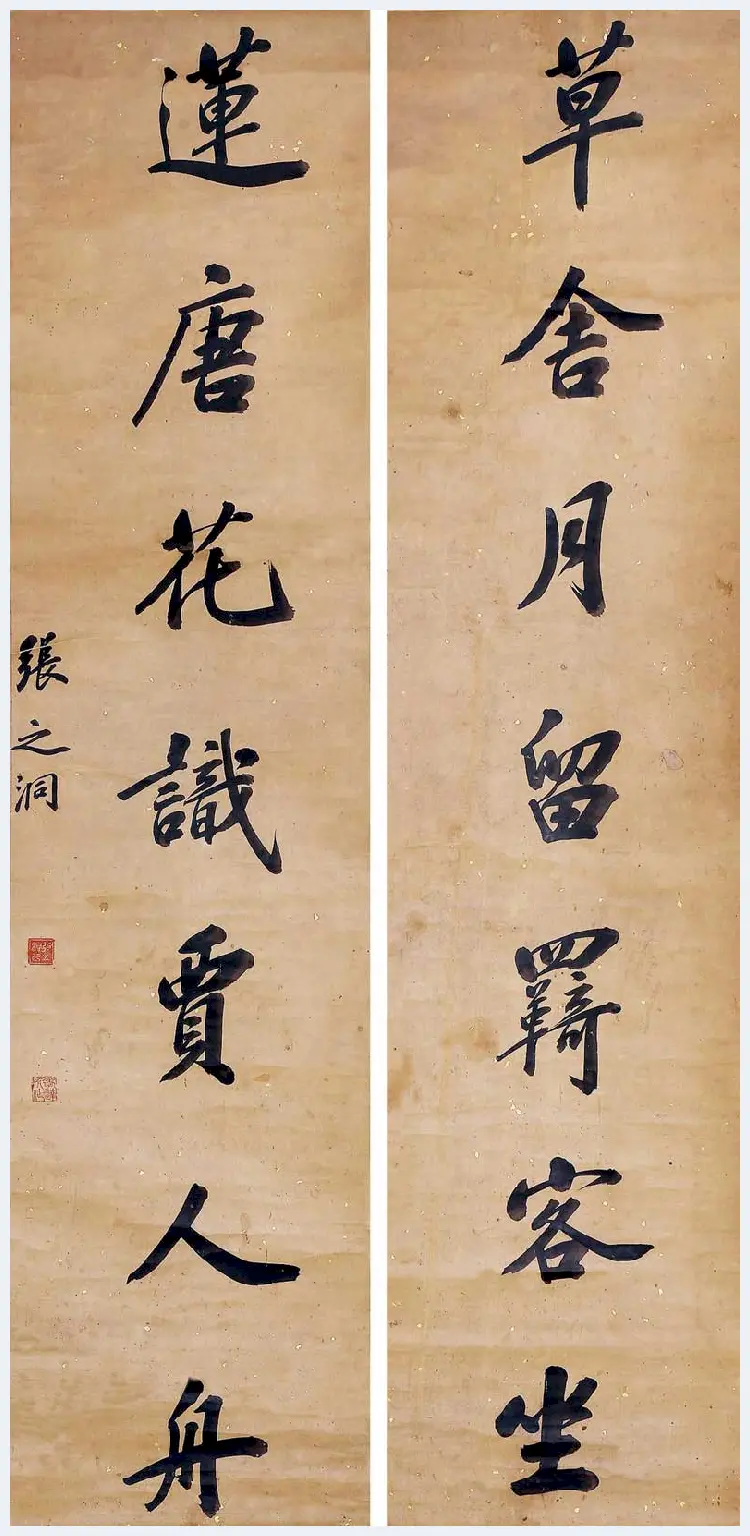 草舍月留羇客坐
蓮唐花識賈人舟
張之洞